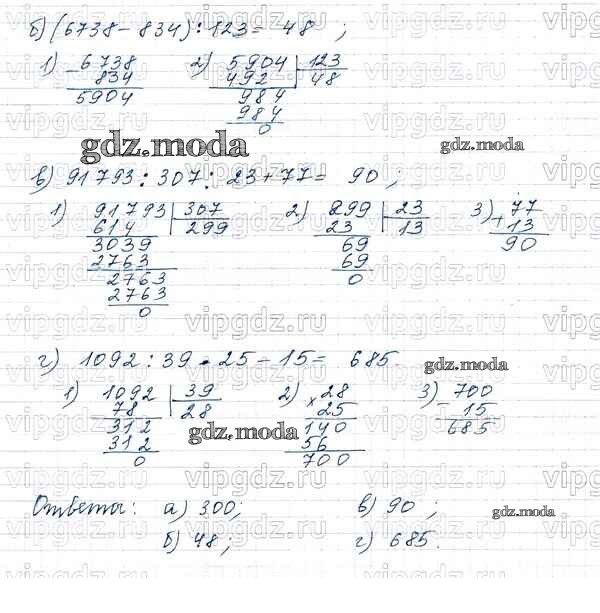 б) (6738 - 834) : 123 = 48 ;
1) 6738 2) 5904 | 123
- 834 492 | 48
5904 984
984
0
gdz.moda
gdz.moda
в) 91793 : 307 : 23 + 77 = 90 ;
1) 91793 | 307 2) 299 | 23 3) 77
614 | 299 23 | 13 + 13
3039 69 90
2763 69
2763 0
2763
0
г) 1092 : 39 · 25 - 15 = 685.
gdz.moda
1) 1092 | 39 2) 28 3) 700
78 | 28 × 25 - 15
312 140 685
312 56
0 700
gdz.moda
Ответы: а) 300; в) 90 ;
gdz.moda
б) 48 ; г) 685.
vipgdz.ru